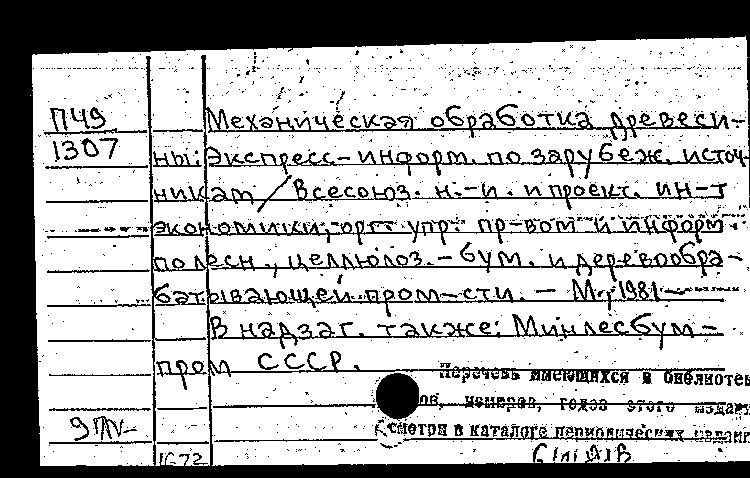 ПЧ9
1307
Механическая обработка древеси-
ны: Экспресс-информ. по зарубеж. источ-
никам / Всесоюз. н.-и. и проект. ин-т
экономики, орг. упр. пр-вом и информ.
по лесн., целлюлоз.-бум. и деревообра-
батывающей пром-сти. - М., 1981-
В надзаг. также: Минлесбум-
пром СССР.
Перечень имеющихся в библиотек
ов, номеров, годов этого издани
смотри в каталоге периодических издани
1672